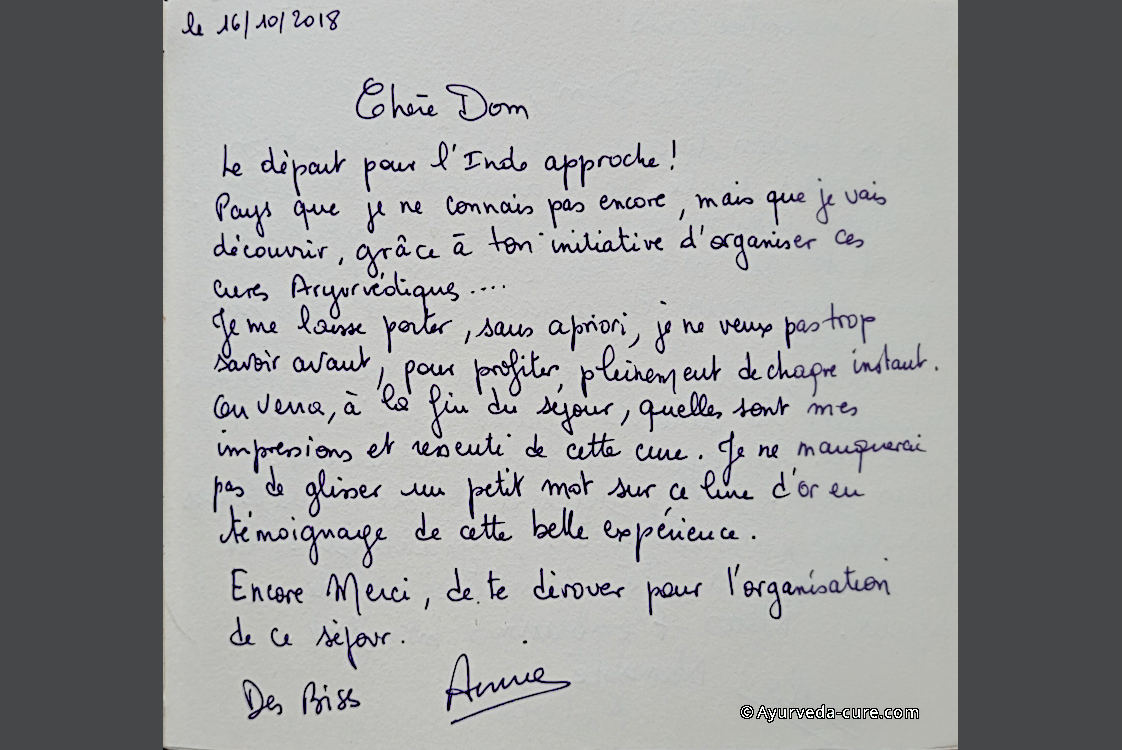 le 16/10/2018
Chère Dom
Le départ pour l'Inde approche !
Pays que je ne connais pas encore, mais que je vais
découvrir, grâce à ton initiative d'organiser ces
cures Aryurvédiques ....
Je me laisse porter, sans apriori, je ne veux pas trop
savoir avant, pour profiter, pleinement de chaque instant.
On verra, à la fin du séjour, quelles sont mes
impressions et ressenti de cette cure. Je ne manquerai
pas de glisser un petit mot sur ce livre d'or en
témoignage de cette belle expérience.
Encore Merci, de te dévouer pour l'organisation
de ce séjour.
Des Biss Annie
© Ayurveda-cure.com